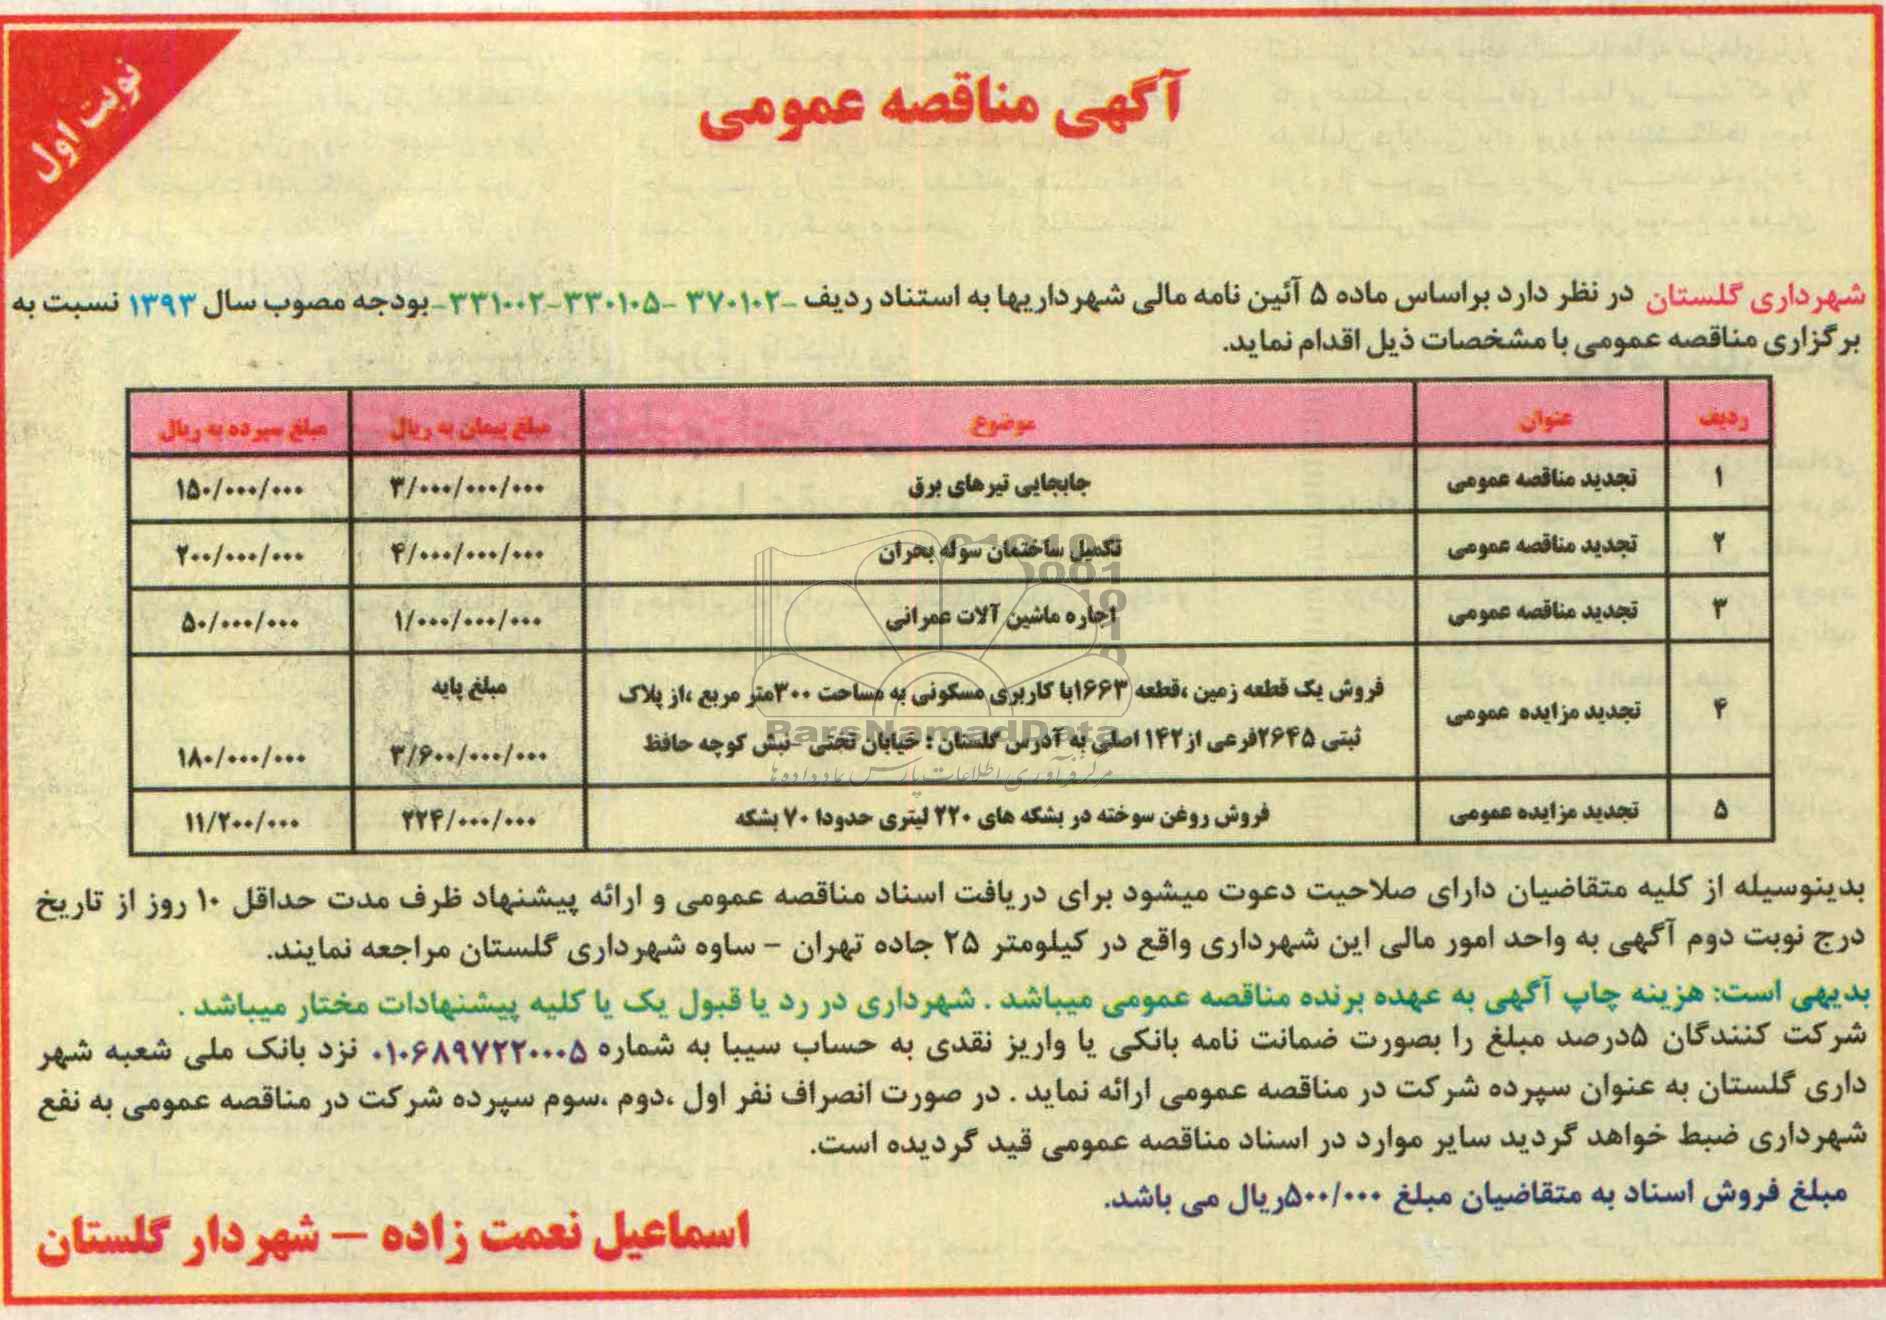 نوبت اول
آگهی مناقصه عمومی
شهرداری گلستان در نظر دارد براساس ماده ۵ آئین نامه مالی شهرداریها به استناد ردیف -۳۷۰۱۰۲ -۳۳۰۱۰۵-۳۳۱۰۰۲-بودجه مصوب سال ۱۳۹۳ نسبت به
برگزاری مناقصه عمومی با مشخصات ذیل اقدام نماید.
ردیف عنوان موضوع مبلغ پیمان به ریال مبلغ سپرده به ریال
۱ تجدید مناقصه عمومی جابجایی تیرهای برق ۳/۰۰۰/۰۰۰/۰۰۰ ۱۵۰/۰۰۰/۰۰۰
۲ تجدید مناقصه عمومی تکمیل ساختمان سوله بحران ۴/۰۰۰/۰۰۰/۰۰۰ ۲۰۰/۰۰۰/۰۰۰
۳ تجدید مناقصه عمومی اجاره ماشین آلات عمرانی ۱/۰۰۰/۰۰۰/۰۰۰ ۵۰/۰۰۰/۰۰۰
۴ تجدید مزایده عمومی فروش یک قطعه زمین ،قطعه ۱۶۶۳با کاربری مسکونی به مساحت ۳۰۰متر مربع ،از پلاک مبلغ پایه
ثبتی ۲۶۴۵فرعی از۱۴۲ اصلی به آدرس گلستان : خیابان تختی -نبش کوچه حافظ ۳/۶۰۰/۰۰۰/۰۰۰ ۱۸۰/۰۰۰/۰۰۰
۵ تجدید مزایده عمومی فروش روغن سوخته در بشکه های ۲۲۰ لیتری حدودا ۷۰ بشکه ۲۲۴/۰۰۰/۰۰۰ ۱۱/۲۰۰/۰۰۰
ParsNamadData
مرکز فرآوری اطلاعات پارس نماد داده ها
بدینوسیله از کلیه متقاضیان دارای صلاحیت دعوت میشود برای دریافت اسناد مناقصه عمومی و ارائه پیشنهاد ظرف مدت حداقل ۱۰ روز از تاریخ
درج نوبت دوم آگهی به واحد امور مالی این شهرداری واقع در کیلومتر ۲۵ جاده تهران – ساوه شهرداری گلستان مراجعه نمایند.
بدیهی است: هزینه چاپ آگهی به عهده برنده مناقصه عمومی میباشد . شهرداری در رد یا قبول یک یا کلیه پیشنهادات مختار میباشد .
شرکت کنندگان ۵درصد مبلغ را بصورت ضمانت نامه بانکی یا واریز نقدی به حساب سیبا به شماره ۰۱۰۶۸۹۷۲۲۰۰۰۵ نزد بانک ملی شعبه شهر
داری گلستان به عنوان سپرده شرکت در مناقصه عمومی ارائه نماید . در صورت انصراف نفر اول ،دوم ،سوم سپرده شرکت در مناقصه عمومی به نفع
شهرداری ضبط خواهد گردید سایر موارد در اسناد مناقصه عمومی قید گردیده است.
مبلغ فروش اسناد به متقاضیان مبلغ ۵۰۰/۰۰۰ریال می باشد.
اسماعیل نعمت زاده – شهردار گلستان